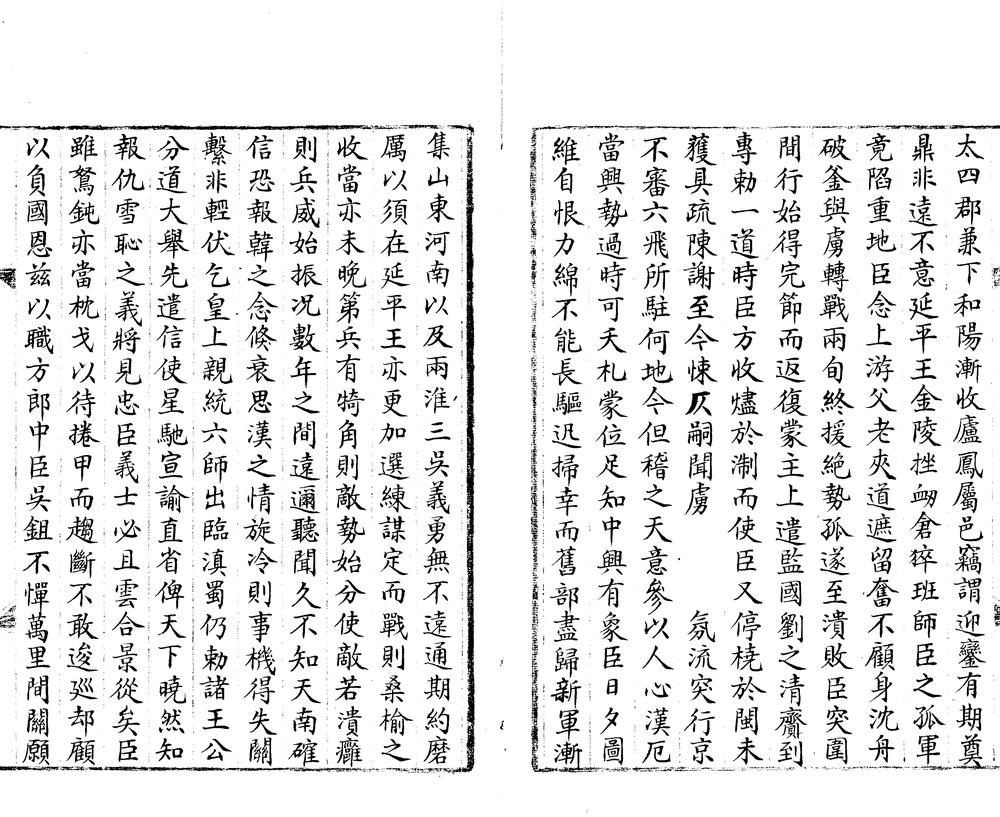 太四郡兼下和陽漸收廬鳳屬邑竊謂迎鑾有期奠
鼎非遠不意延平王金陵挫衂倉猝班師臣之孤軍
竟陷重地臣念上游父老夾道遮留奮不顧身沈舟
破釜與虜轉戰兩旬終援絶勢孤遂至潰敗臣突圍
間行始得完節而返復蒙主上遣監國劉之清齎到
專勅一道時臣方收燼於淛而使臣又停橈於閩未
蒦具疏陳謝至今悚仄嗣聞虜 氛流突行京
不審六飛所駐何地今但稽之天意參以人心漢厄
當興勢過時可夭札蒙位足知中興有象臣日夕圖
維自恨力綿不能長驅迅掃幸而舊部盡歸新軍漸
集山東河南以及兩淮三吳義勇無不遠通期約磨
厲以須在延平王亦更加選練謀定而戰則桑榆之
收當亦未晚第兵有犄角則敵勢始分使敵若潰癰
則兵威始振况數年之間遠邇聽聞久不知天南確
信恐報韓之念倏衰思漢之情旋冷則事機得失關
繫非輕伏乞皇上親統六師出臨滇蜀仍勅諸王公
分道大舉先遣信使星馳宣諭直省俾天下曉然知
報仇雪恥之義將見忠臣義士必且雲合景從矣臣
雖駑鈍亦當枕戈以待捲甲而趨斷不敢逡廵却顧
以負國恩兹以職方郎中臣吳鉏不憚萬里間關願